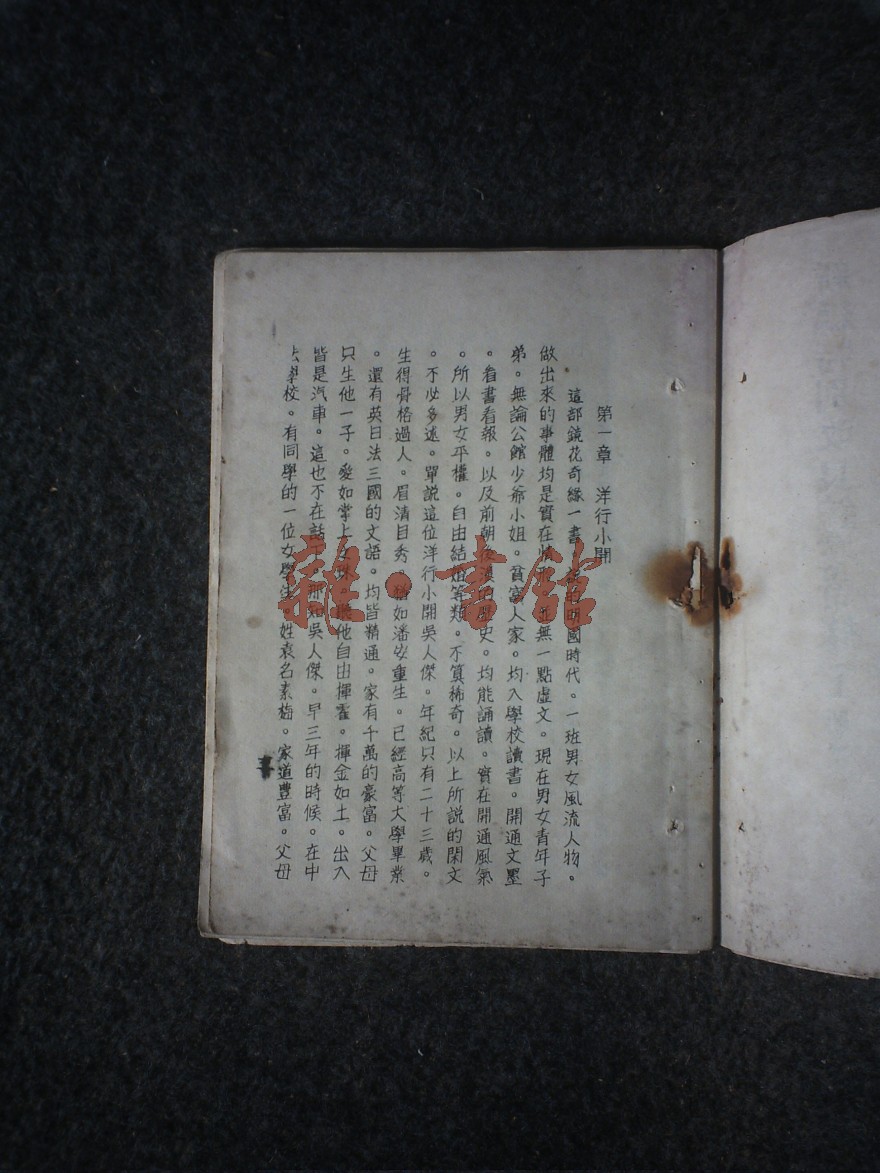 第一章　洋行小開
這部鏡花奇緣一書。民國時代。一班男女風流人物。
做出來的事體均是實在情形。並無一點虛文。現在男女青年子
弟。無論公館少爺小姐。貧富人家。均入學校讀書。開通文墨
。看書看報。以及前朝後漢的歷史。均能誦讀。實在開通風氣
。所以男女平權。自由結婚等類。不算稀奇。以上所說的閑文
。不必多述。單說這位洋行小開吳人傑。年紀只有二十三歲。
生得骨格過人。眉清目秀。猶如潘安重生。已經高等大學畢業
。還有英日法三國的文語。均皆精通。家有千萬的豪富。父母
只生他一子。愛如掌上之珠。他自由揮霍。揮金如土。出入
皆是汽車。這也不在話下。那知吳人傑。早三年的時候。在中
學校。有同學的一位女學生。姓袁名素梅。家道豐富。父母
雜·書館